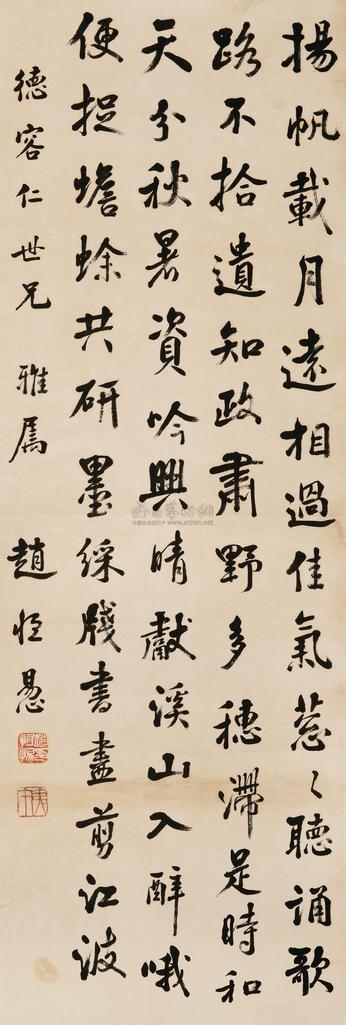 揚帆載月遠相過佳氣葱〻聽誦歌
路不拾遺知政肅野多穗滯是時和
天分秋暑資吟興晴獻溪山入醉哦
便捉蟾蜍共研墨綵牋書盡剪江波
德容仁世兄 雅属 趙恒惕
www.artron.net